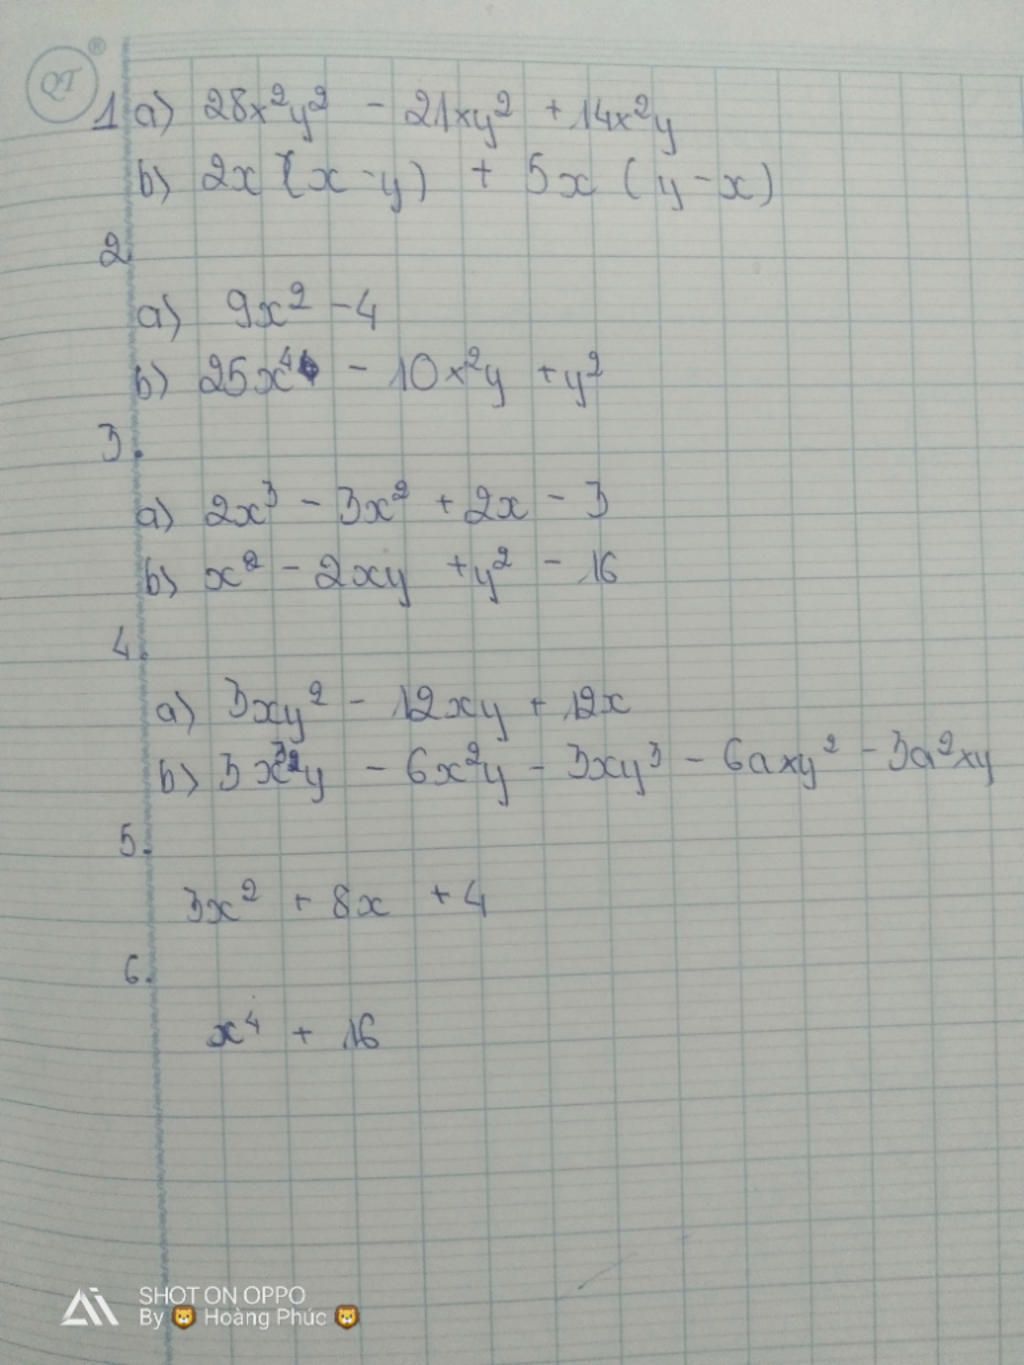 QT ®
1 a) 28x²y² - 21xy² + 14x²y
b) 2x (x - y) + 5x (y - x)
2
a) 9x² - 4
b) 25x⁴ - 10x²y + y²
3.
a) 2x³ - 3x² + 2x - 3
b) x² - 2xy + y² - 16
4.
a) 3xy² - 12xy + 12x
b) 3x³y - 6x²y - 3xy³ - 6axy² - 3a²xy
5.
3x² + 8x + 4
6.
x⁴ + 16
SHOT ON OPPO
By 🦁 Hoàng Phúc 🦁